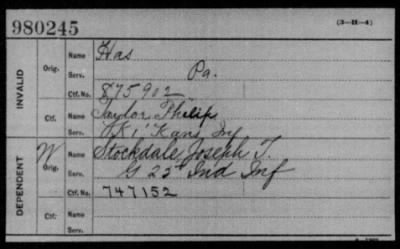 980245
(3—H—4)
INVALID
Orig.
Name Has
Serv. Pa.
Ctf. No. 875902
Ctf.
Name Taylor, Philip
Serv. K 1" Kans Inf
DEPENDENT
W
Orig.
Name Stockdale, Joseph T.
Serv. G 25" Ind Inf
Ctf. No. 747152
Ctf.
Name
Serv.